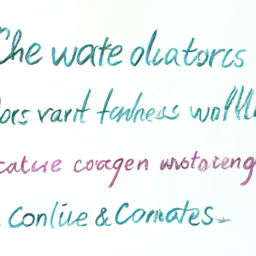 Che wate olcatorcs
lors varit fanhess wolll
cature coragen wostoreng
Conlіue & Cornates